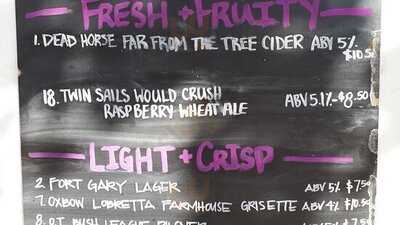 FRESH + FRUITY
1. DEAD HORSE FAR FROM THE TREE CIDER ABV 5%
$10.50
18. TWIN SAILS WOULD CRUSH ABV 5.1% - $8.50
RASPBERRY WHEAT ALE
LIGHT + CRISP
2. FORT GARY LAGER ABV 5% $7.50
7. OXBOW LOBRETTA FARMHOUSE GRISETTE ABV 4% $10.50
8. O.T. BUSH LEAGUE